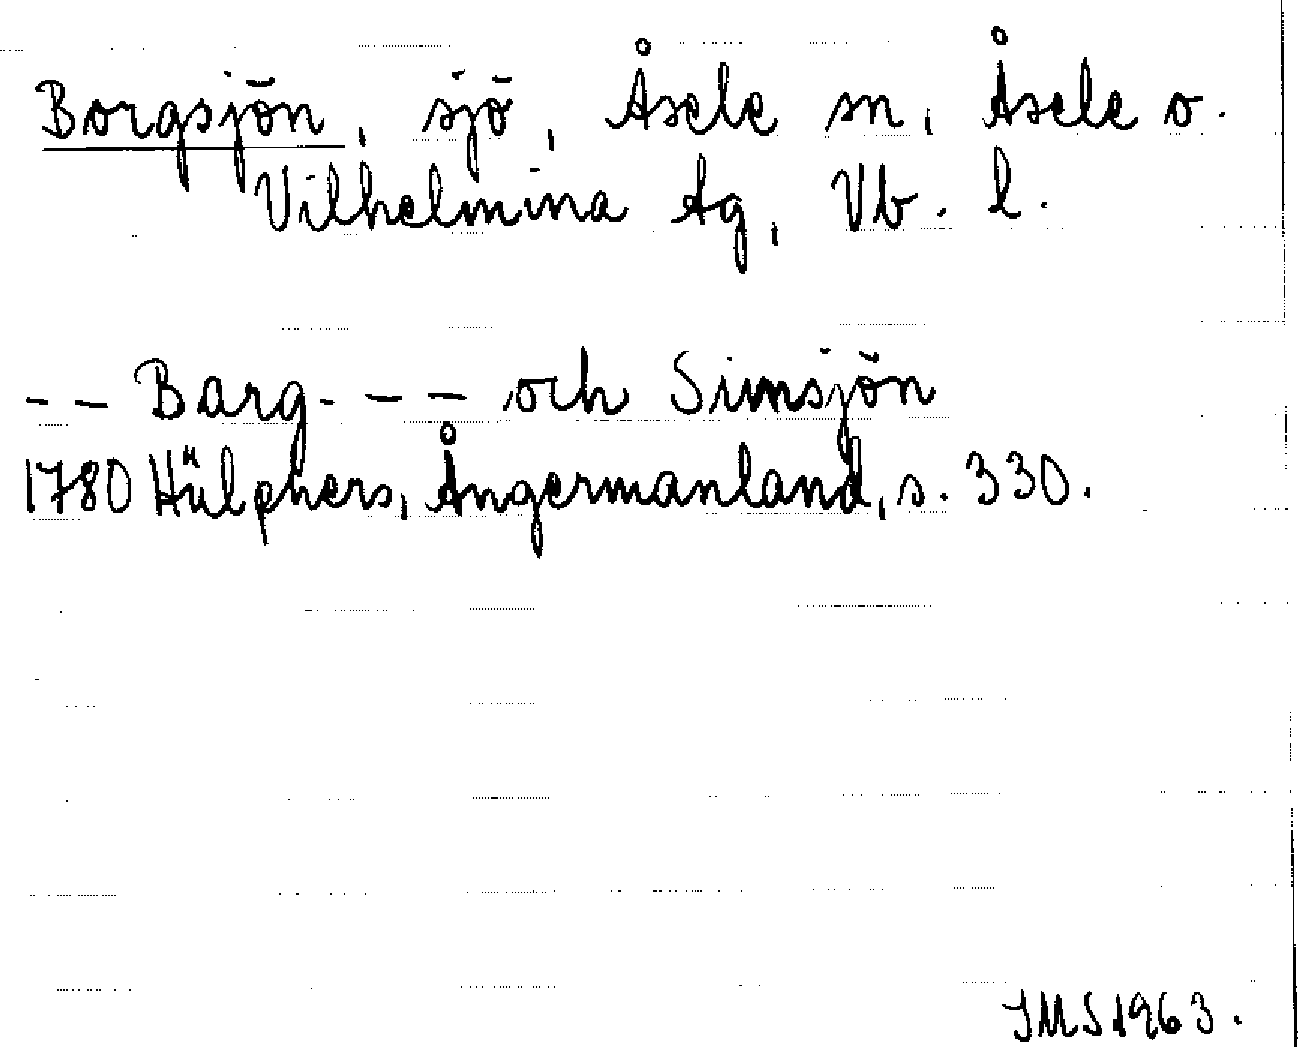 Borgsjön, sjö, Åsele sn, Åsele o.
Vilhelmina tg, Vb. l.
-- Barg- -- och Simsjön
1780 Hülphers, Ångermanland, s. 330.
JMS 1963.